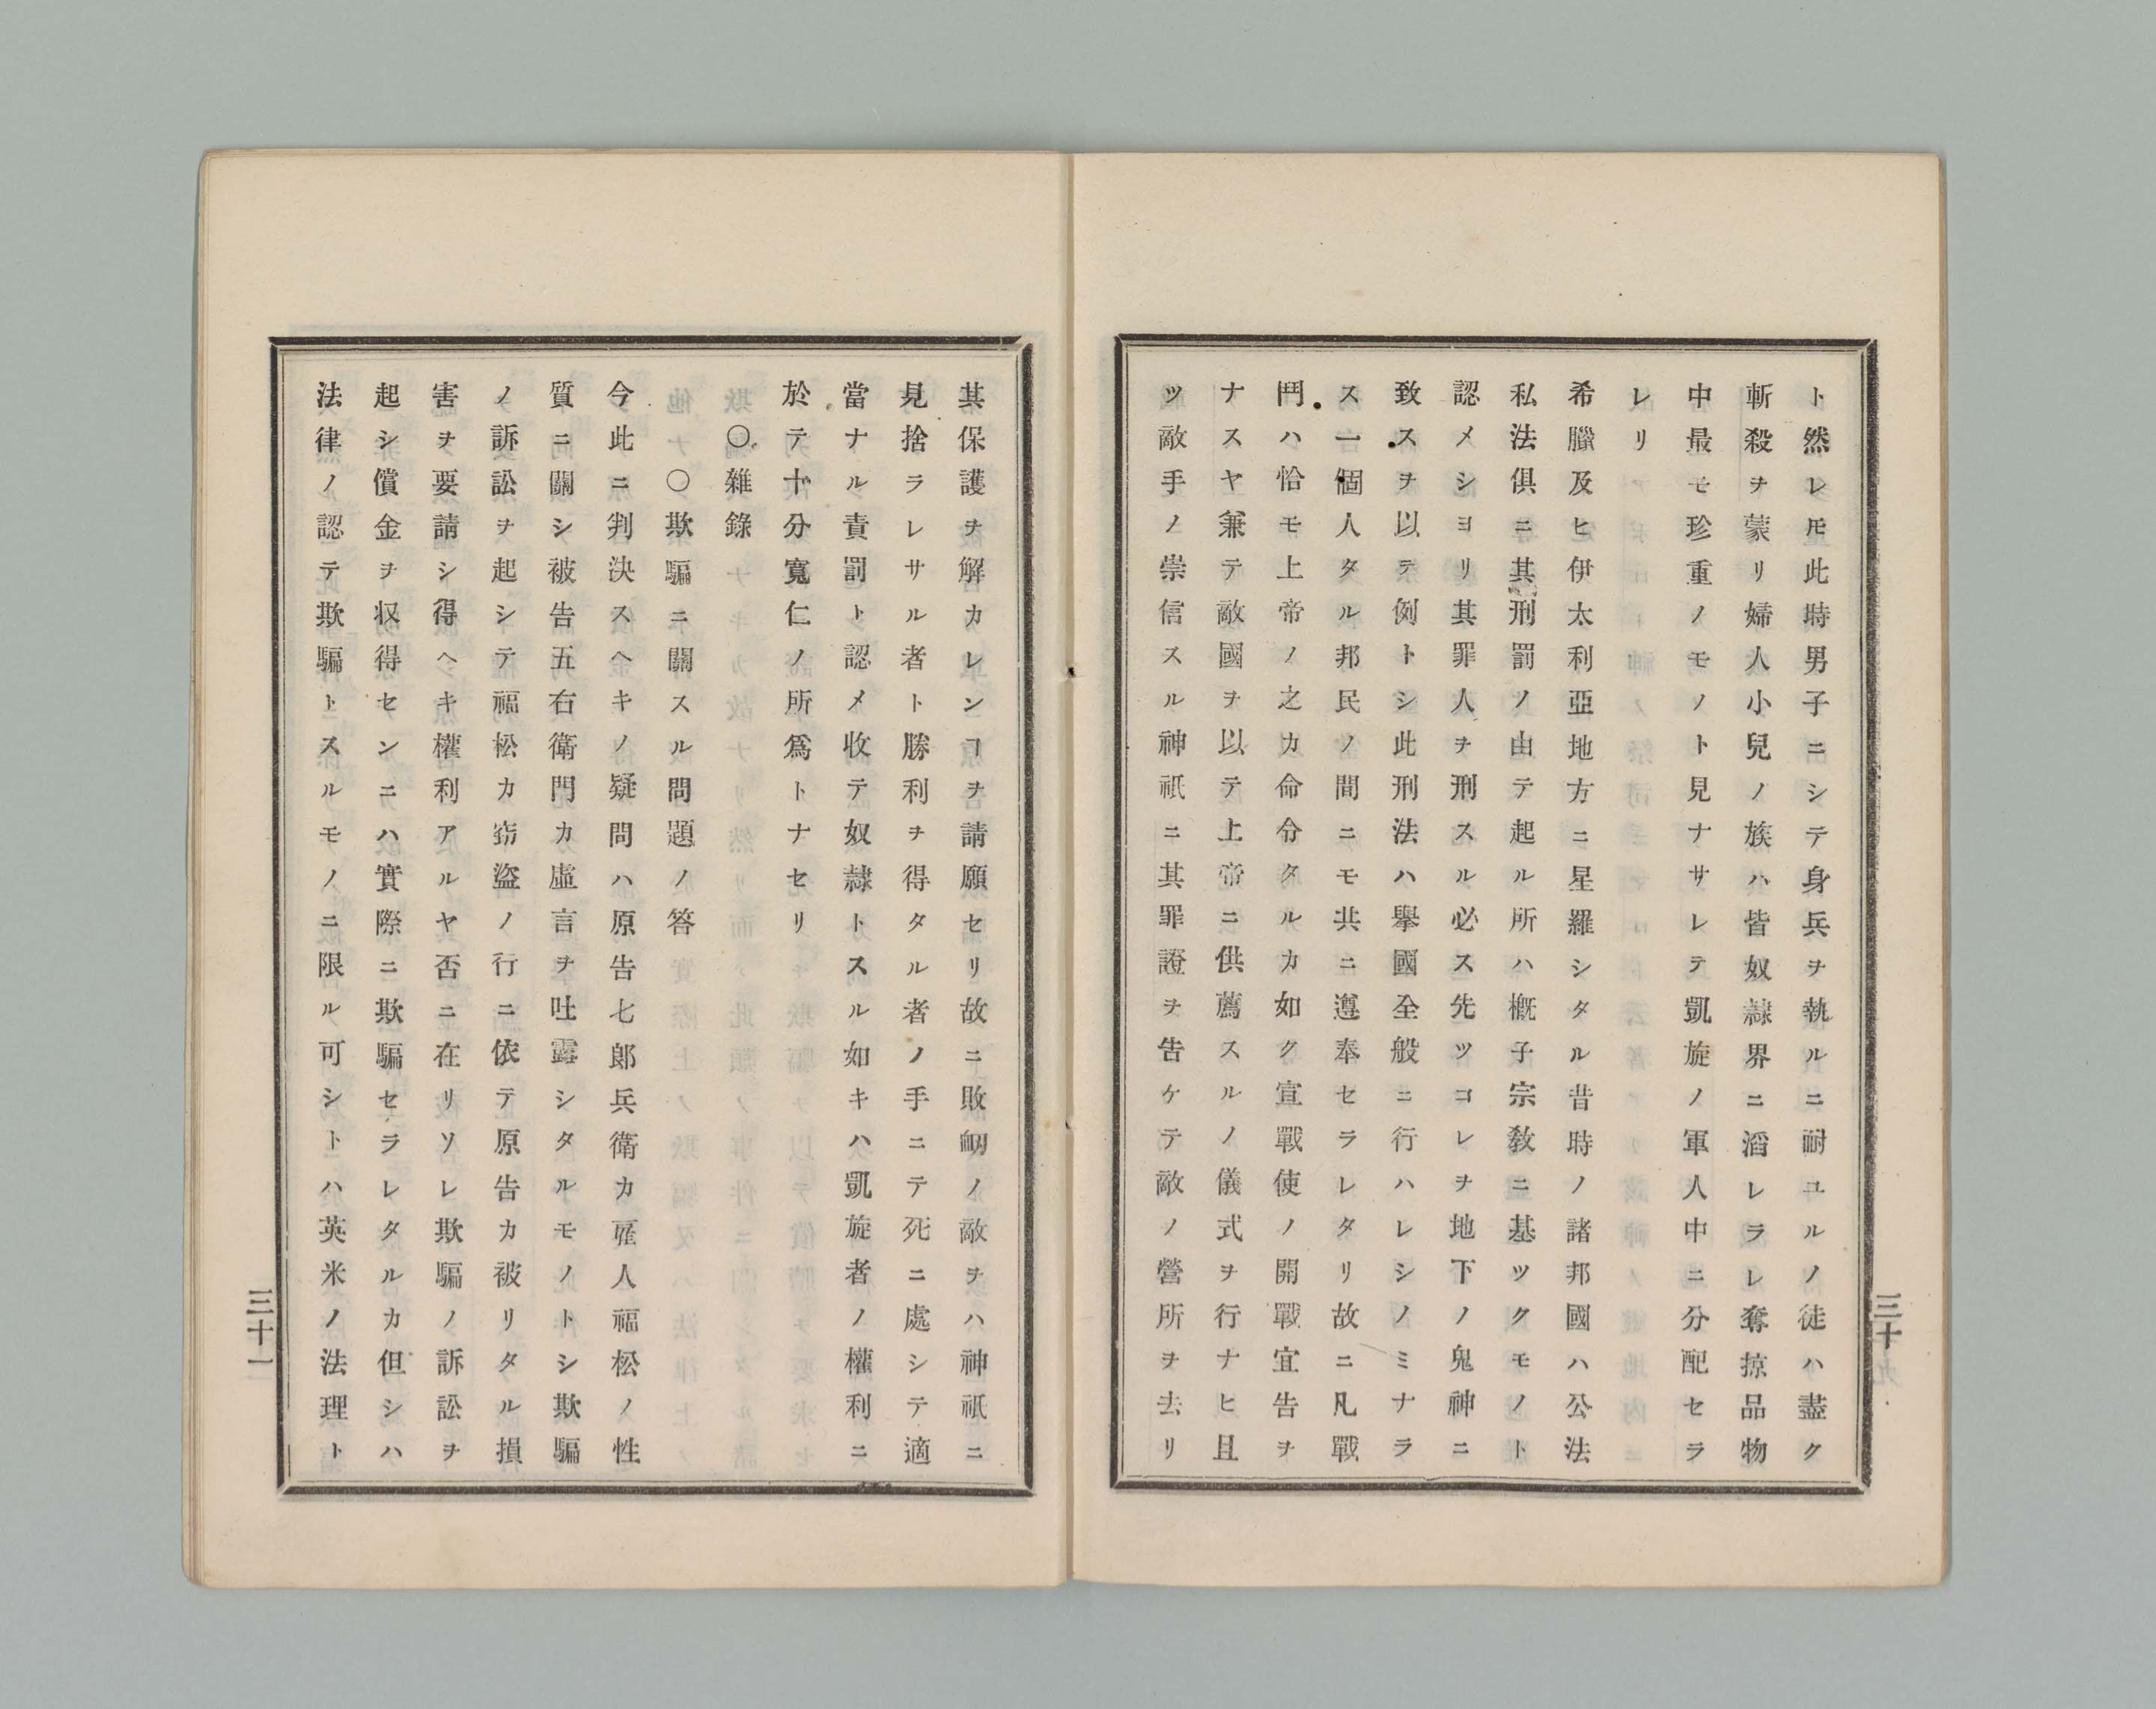 ト然レ𪜈此時男子ニシテ身兵ヲ執ルニ耐ユルノ徒ハ盡ク
斬殺ヲ蒙リ婦人小兒ノ族ハ皆奴隷界ニ滔レラレ奪掠品物
中最モ珍重ノモノト見ナサレテ凱旋ノ軍人中ニ分配セラ
レリ
希臘及ヒ伊太利亞地方ニ星羅シタル昔時ノ諸邦國ハ公法
私法俱ニ其刑罰ノ由テ起ル所ハ概子宗敎ニ基ツクモノト
認メシヨリ其罪人ヲ刑スル必ス先ツコレヲ地下ノ鬼神ニ
致スヲ以テ例トシ此刑法ハ擧國全般ニ行ハレシノミナラ
ス一個人タル邦民ノ間ニモ共ニ遵奉セラレタリ故ニ凡戰
鬥ハ恰モ上帝ノ之カ命分タルカ如ク宣戰使ノ開戰宣告ヲ
ナスヤ兼テ敵國ヲ以テ上帝ニ供薦スルノ儀式ヲ行ナヒ且
ツ敵手ノ崇信スル神祇ニ其罪證ヲ告ケテ敵ノ營所ヲ去リ
三十
其保護ヲ解カレンヿヲ請願セリ故ニ敗衂ノ敵ヲハ神祇ニ
見捨ラレサル者ト勝利ヲ得タル者ノ手ニテ死ニ處シテ適
當ナル責罰ト認メ收テ奴隷トスル如キハ凱旋者ノ權利ニ
於テ十分寬仁ノ所爲トナセリ
〇雜錄
〇欺騙ニ關スル問題ノ答
今此ニ判決スヘキノ疑問ハ原告七郎兵衛カ雇人福松ノ性
質ニ關シ被告五右衛門カ虛言ヲ吐露シタルモノトシ欺騙
ノ訴訟ヲ起シテ福松カ窃盜ノ行ニ依テ原告カ被リタル損
害ヲ要請シ得ヘキ權利アルヤ否ニ在リソレ欺騙ノ訴訟ヲ
起シ償金ヲ収得センニハ實際ニ欺騙セラレタルカ但シハ
法律ノ認テ欺騙トスルモノニ限ル可シトハ英米ノ法理ト
三十一